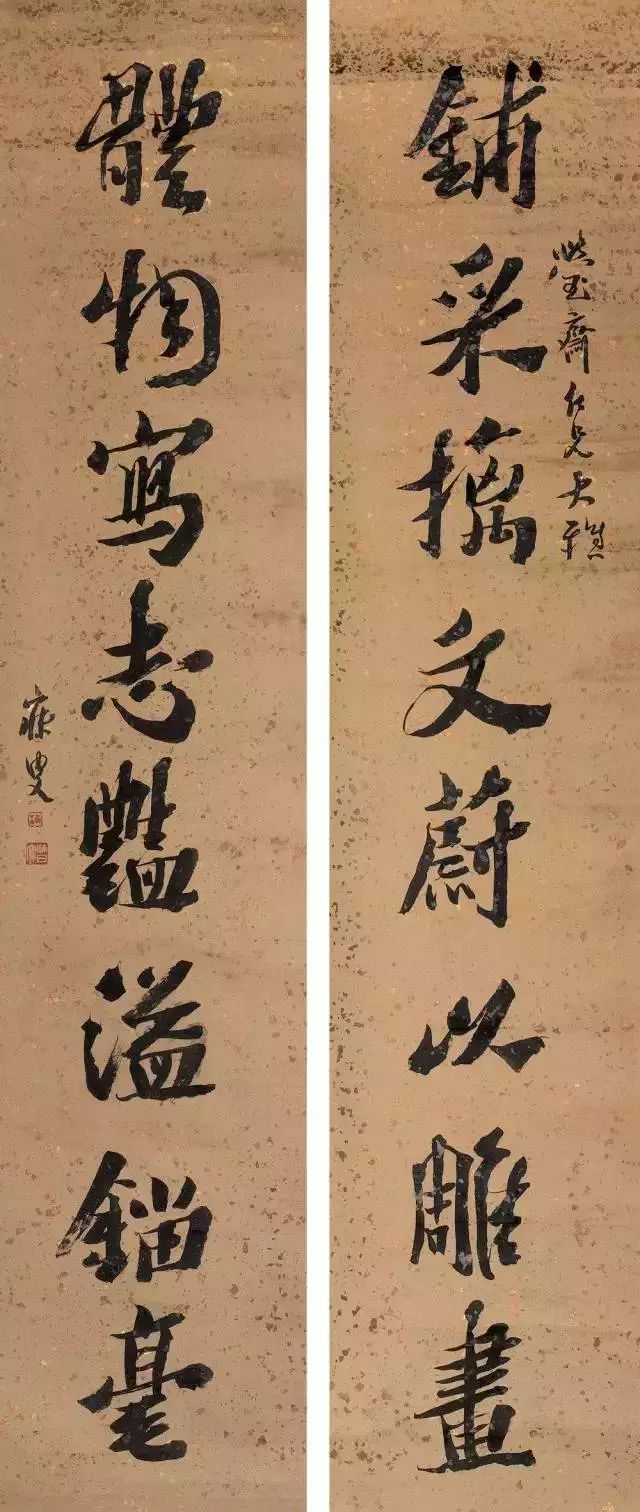 玉齋仁兄大雅
鋪采摛文蔚以雕畫
體物寫志豔溢錙毫
寐叟